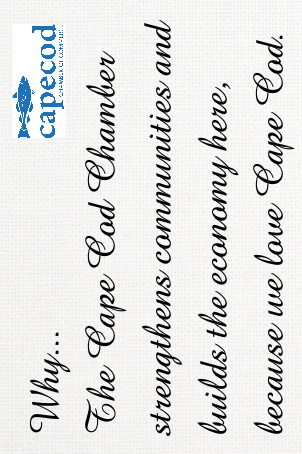 Why...
The Cape Cod Chamber
strengthens communities and
builds the economy here,
because we love Cape Cod.
capecod
CHAMBER OF COMMERCE